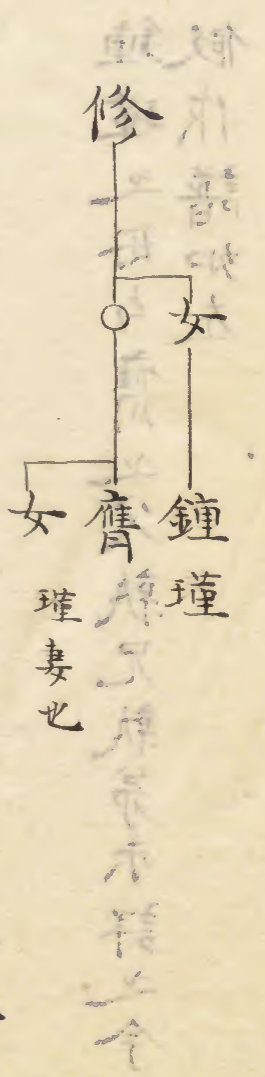 修
女
○
鍾瑾
膺
女
瑾妻也